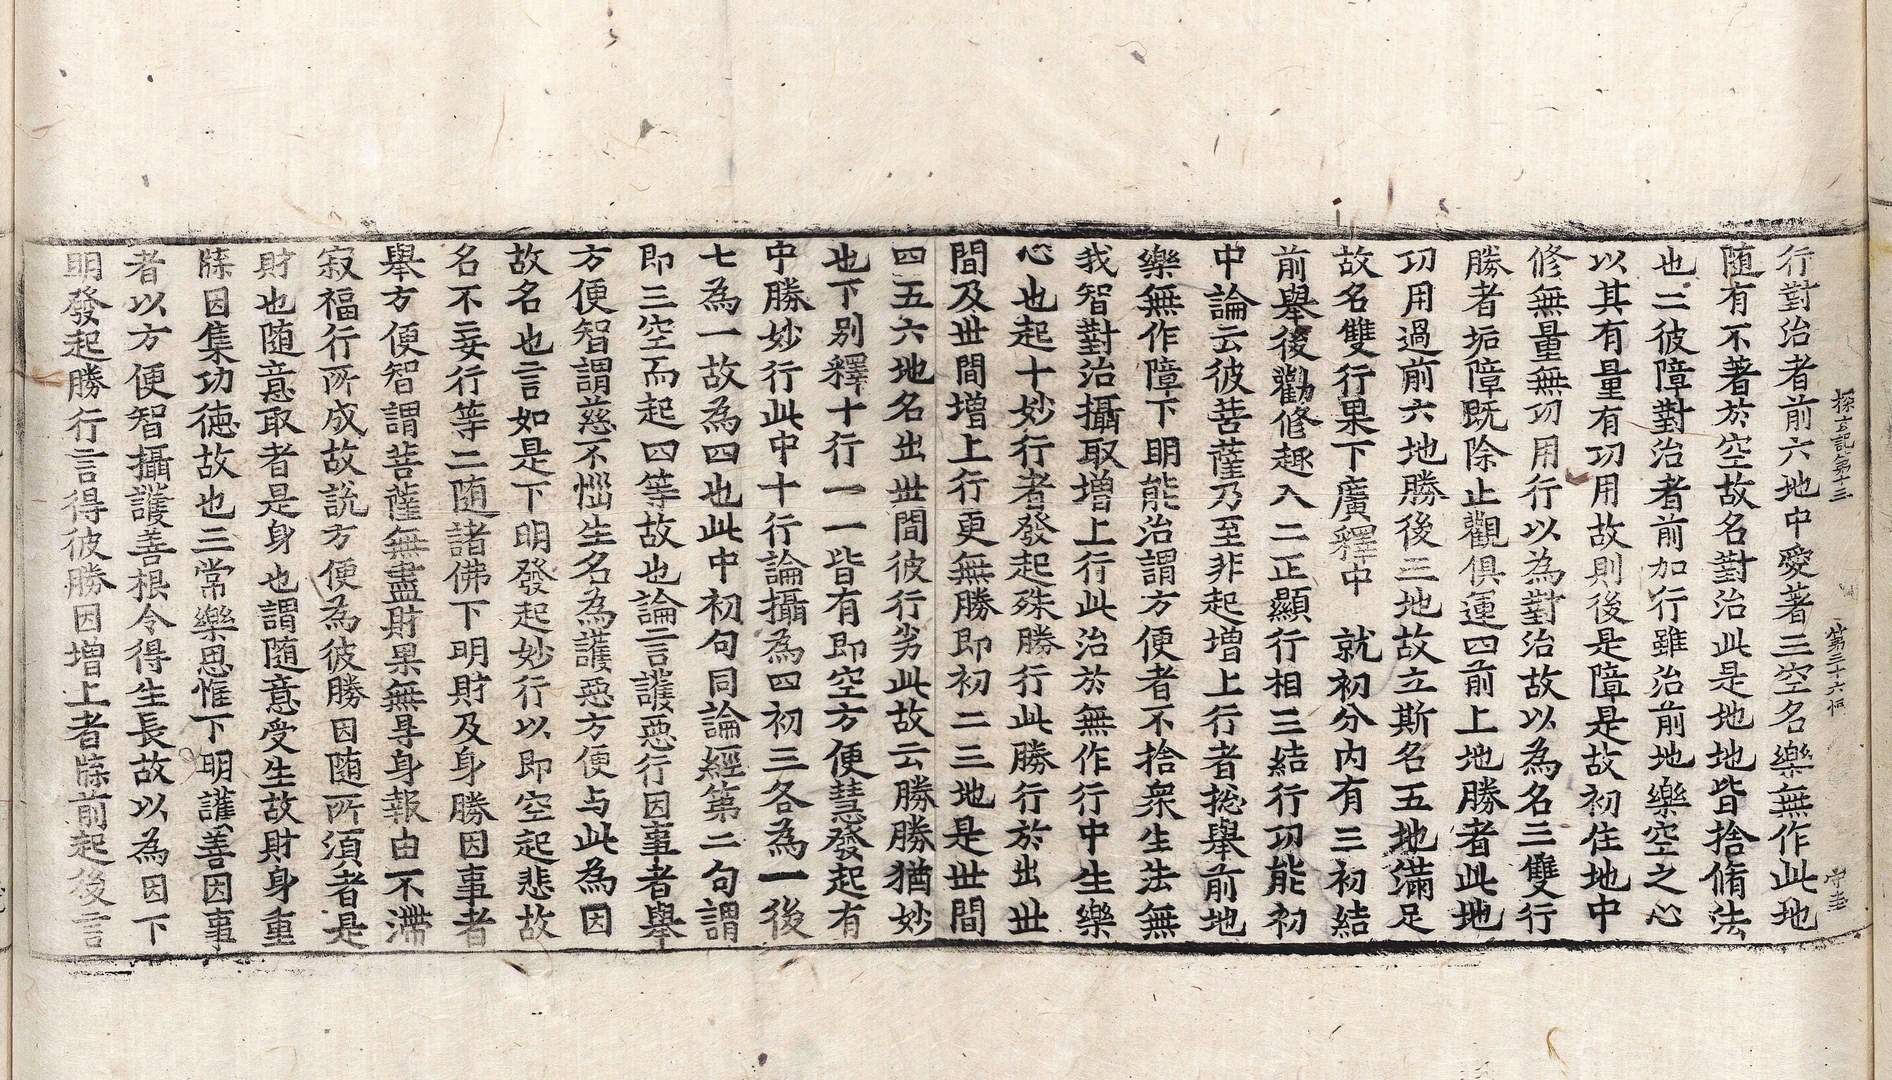 探玄記第十三 第三十六 
行對治者前六地中愛著三空名樂無作此地
随有不著於空故名對治此是地地皆捨脩法
也二彼障對治者前加行雖治前地樂空之心
以其有量有功用故則後是障是故初住地中
修無量無功用行以為對治故以為名三雙行
勝者垢障既除止觀俱運四前上地勝者此地
功用過前六地勝後三地故立斯名五地滿足
故名雙行果下廣釋中 就初分内有三初結
前舉後勸修趣入二正顯行相三結行功能初
中論云彼菩薩乃至非起增上行者捴舉前地
樂無作障下明能治謂方便者不捨衆生法無
我智對治攝取增上行此治於無作行中生樂
心也起十妙行者發起殊勝行此勝行於出丗
間及丗間增上行更無勝即初二三地是丗間
四五六地名出丗間彼行劣此故云勝勝猶妙
也下别釋十行一一皆有即空方便慧發起有
中勝妙行此中十行論攝為四初三各為一後
七為一故為四也此中初句同論經第二句謂
即三空而起四等故也論言護惡行因事者舉
方便智謂慈不惱生名為護惡方便与此為因
故名也言如是下明發起妙行以即空起悲故
名不妄行等二随諸佛下明財及身勝因事者
舉方便智謂菩薩無盡財果無㝵身報由不滯
寂福行所成故說方便為彼勝因随所須者是
財也随意取者是身也謂随意受生故財身重
牒因集功德故也三常樂思惟下明護善因事
者以方便智攝護善根令得生長故以為因下
明發起勝行言得彼勝因增上者牒前起後言